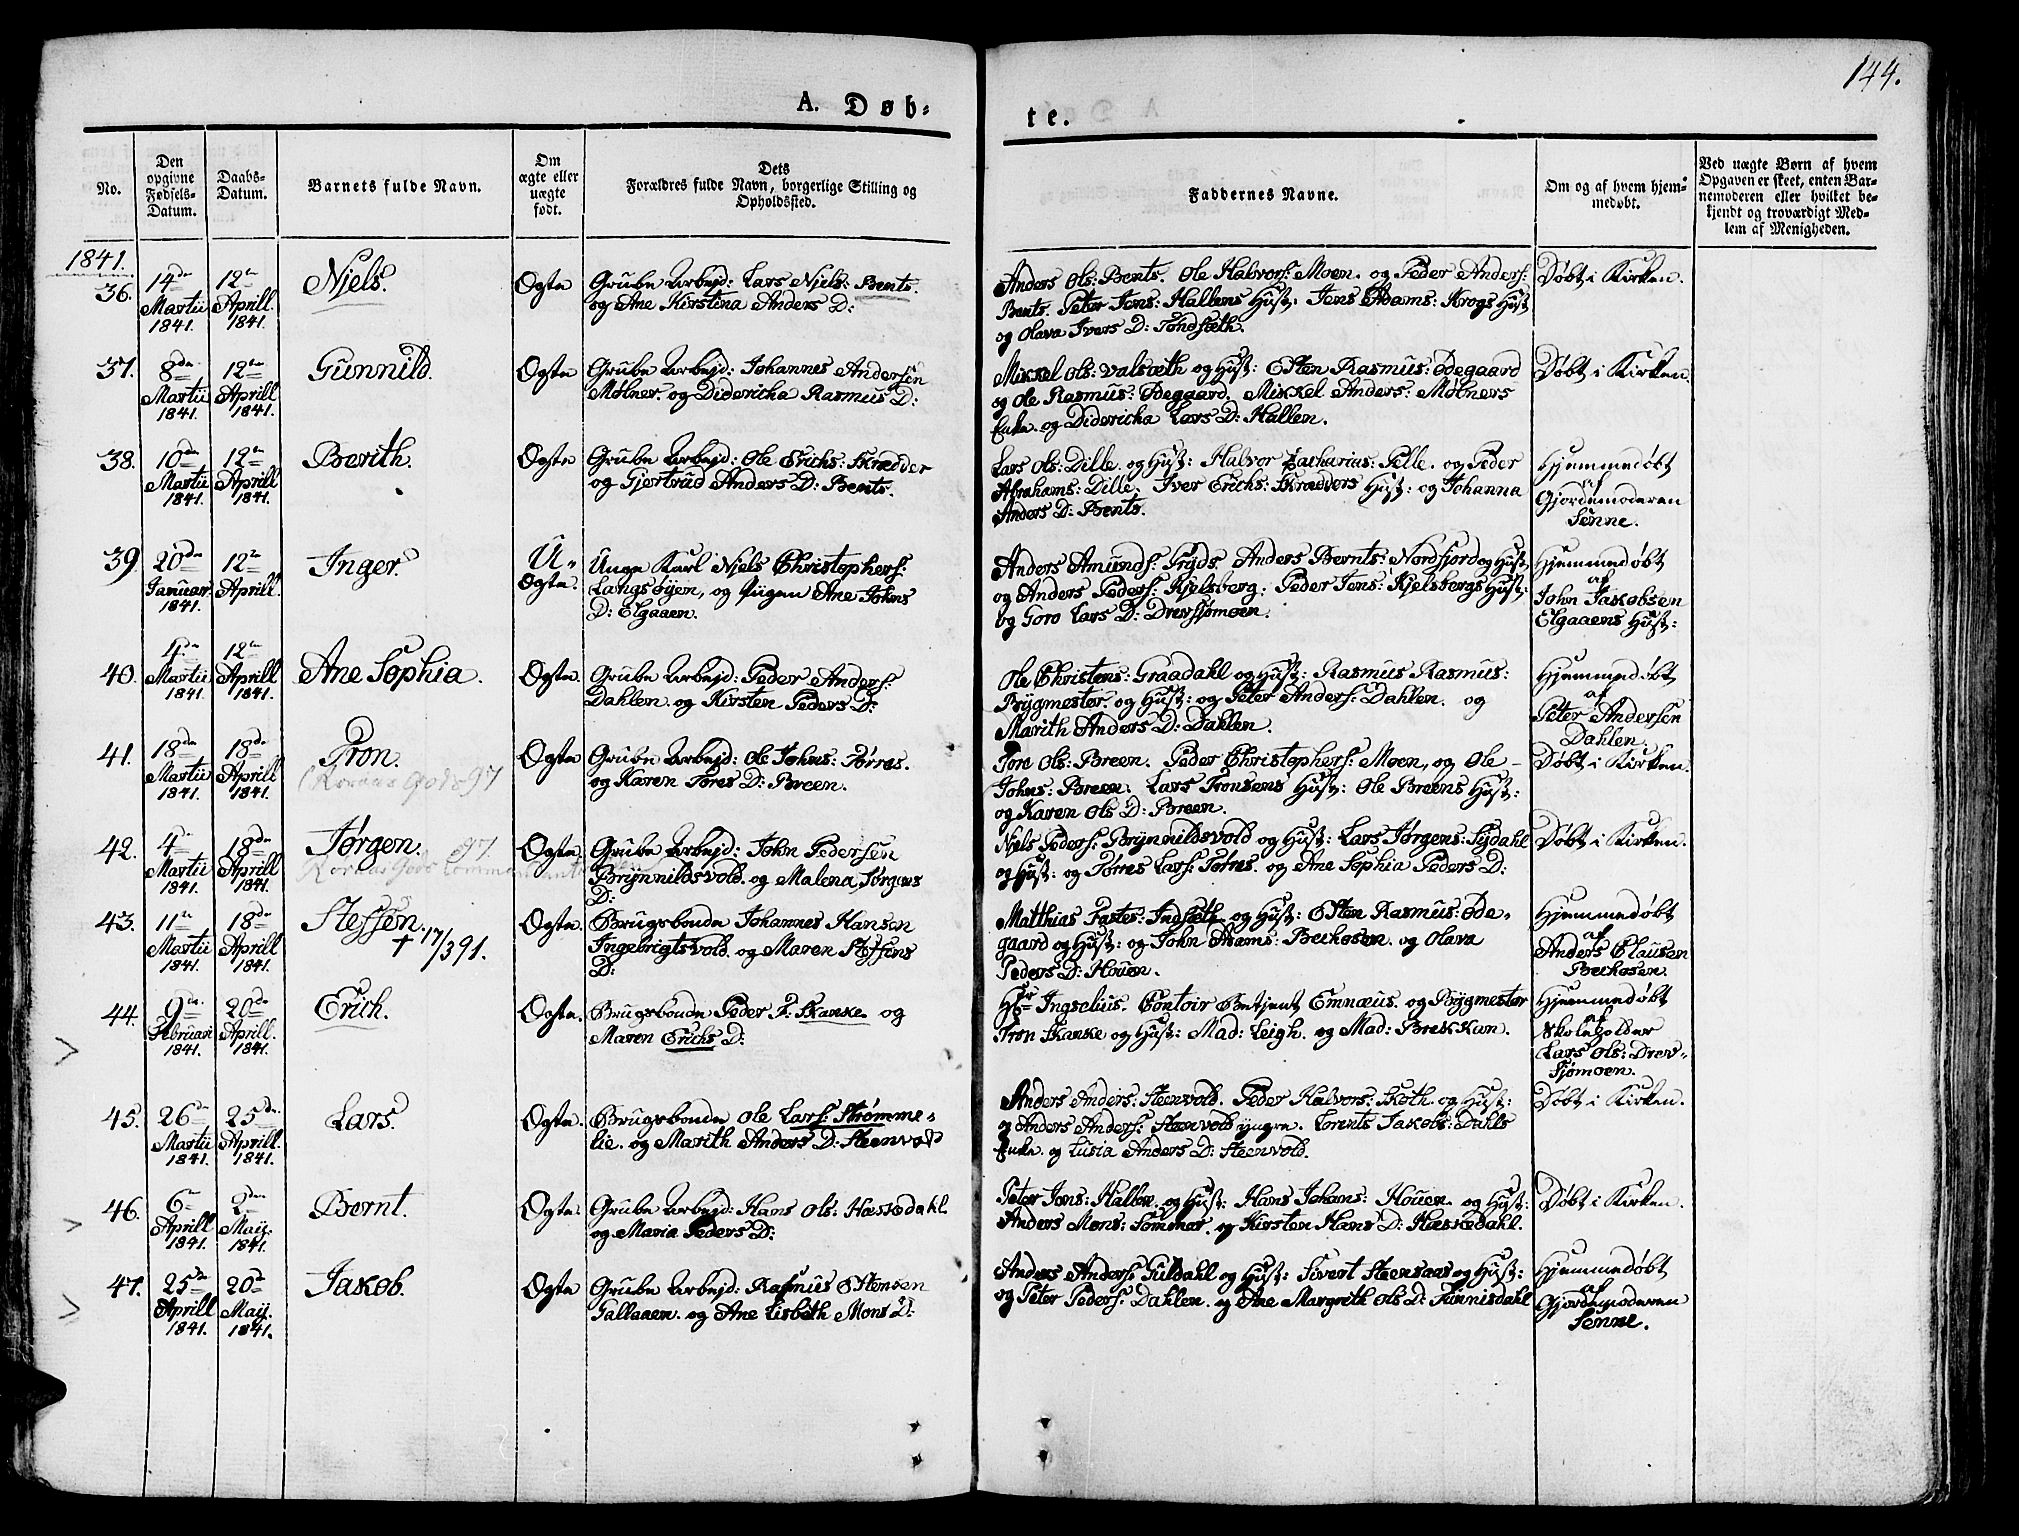 144.
A. Døb-
te.
No.
Den opgivne Fødsels-Datum.
Daabs-Datum.
Barnets fulde Navn.
Om ægte eller uægte født.
Dets Forældres fulde Navn, borgerlige Stilling og Opholdssted.
Faddernes Navne.
Om og af hvem hjem-medøbt.
Ved uægte Børn af hvem Opgaven er skeet, enten Bar-nemoderen eller hvilket be-kjendt og troværdigt Med-lem af Menigheden.
1841.
36. 14de Martii 1841. 12te Aprill 1841. Niels. Ægte
Grube Arbejd: Lars Niels: Bents.
og Ane Kirstina Anders D:
Anders Ols: Bents. Ole Halvors: Moen. og Peder Anders:
Bents. Peter Jens: Hallens Hust: Jens Adams: Krogs Hust
og Olava Ivers D: Tøndsæth.
Døbt i Kirken.
37. 8de Martii 1841. 12te Aprill 1841. Gunnild. Ægte
Grube Arbejd: Johannes Andersen
Mølner. og Didericha Rasmus D:
Mikkel Ols: Valsæth og Hust: Esten Rasmus: Ødegaard
og Ole Rasmus: Ødegaard. Mikkel Anders: Mølners
Enke. og Didericha Lars D: Hallen.
Døbt i Kirken.
38. 10de Martii 1841. 12te Aprill 1841. Berith. Ægte
Grube Arbejd: Ole Erichs: Skrædder
og Gjertrud Anders D: Bents.
Lars Ols: Dille. og Hust: Halvor Zacharias: Pelle. og Peder
Abrahams: Dille. Iver Erichs: Skrædders Hust: og Johanna
Anders D: Bents.
Hjemmedøbt
af
Gjordemoderen
Senne.
39. 20de Januar. 1841. 12te Aprill. Inger. U-
Ægte.
Unge Karl Niels Christophers:
Langsøyen, og Pigen Ane Johns
D: Elgaaen.
Anders Amunds: Fryds. Anders Bernts: Nordfjord og Hust
og Anders Peders: Kjelsberg. Peder Jens: Kjelsbergs Hust:
og Goro Lars D: Drevsjømoen.
Hjemmedøbt
af
John Jakobsen
Elgaaens Hust:
40. 4de Martii 1841. 12te Aprill 1841. Ane Sophia. Ægte.
Grube Arbejd: Peder Anders:
Dahlen. og Kirsten Peders D:
Ole Christens: Graadahl og Hust: Rasmus Rasmus:
Bygmester. og Hust: og Peter Anders: Dahlen. og
Marith Anders D: Dahlen.
Hjemmedøbt
af
Peter Andersen
Dahlen.
41. 18de Martii 1841. 18de Aprill 1841. Tron. Ægte.
Grube Arbejd: Ole Johns: Tørres.
og Karen Tores D: Breen.
Tore Ols: Breen. Peder Christophers: Moen, og Ole
Johns: Breen. Lars Tronsens Hust: Ole Breens Hust:
og Karen Ols D: Breen.
Døbt i Kirken.
42. 4de Martii 1841. 18de Aprill 1841. Jørgen. 97. Ægte.
Grube Arbejd: John Pedersen
Brynnildsvold. og Malena Jørgens
D:
Niels Peders: Brynnildsvold og Hust: Lars Jørgens: Sejdahl
og Hust: og Tørres Lars: Tørres. og Ane Sophia Peders D:
Døbt i Kirken.
43. 11te Martii 1841. 18de Aprill 1841. Steffen. † 17/3 91. Ægte.
Brugsbonde Johannes Hansen
Ingebrigtsvold. og Maren Steffens
D:
Matthias Fastes: Indsæth. og Hust: Esten Rasmus: Øde-
gaard og Hust: og John Adams: Bechosen. og Olava
Peders D: Houen.
Hjemmedøbt
af
Anders Clausen
Bechosen.
44. 9de Februari 1841. 20de Aprill. 1841. Erich. Ægte.
Brugsbonde Peder P: Skanke og
Maren Erichs D:
Hr Ingselius. Contoir Betjent Emnæus. og Bygmester
Tron Skanke og Hust: Mad: Leigh. og Mad: Brekken.
Hjemmedøbt
af
Skoleholder
Lars Ols: Drev-
sjømoen.
45. 26de Martii 1841. 25de Aprill. 1841. Lars. Ægte.
Brugsbonde Ole Lars: Strømme-
lie. og Marith Anders D: Steenvold
Anders Anders: Steenvold. Peder Halvors: Skoth. og Hust:
og Anders Anders: Steenvold yngre. Lorents Jakobs: Dahls
Enke. og Lusia Anders D: Steenvold.
Døbt i Kirken.
46. 6te Aprill 1841. 2den Maij. 1841. Bernt. Ægte.
Grube Arbejd: Hans Ols: Hæskedahl.
og Maria Peders D:
Peter Jens: Hallen. og Hust: Hans Johans: Houen. og Hust:
Anders Mons: Sommer. og Kirsten Hans D: Hæskedahl.
Døbt i Kirken.
47. 25de Aprill 1841. 20de Maij. 1841. Jakob. Ægte
Grube Arbejd: Rasmus Estensen
Gallaaen. og Ane Lisbeth Mons D:
Anders Anders: Guldahl og Hust: Sivert Steensaas og Hust:
og Peter Peders: Dahlen. og Ane Margreth Ols D: Finnisdahl
Hjemmedøbt
af
Gjordemoderen
Senne.